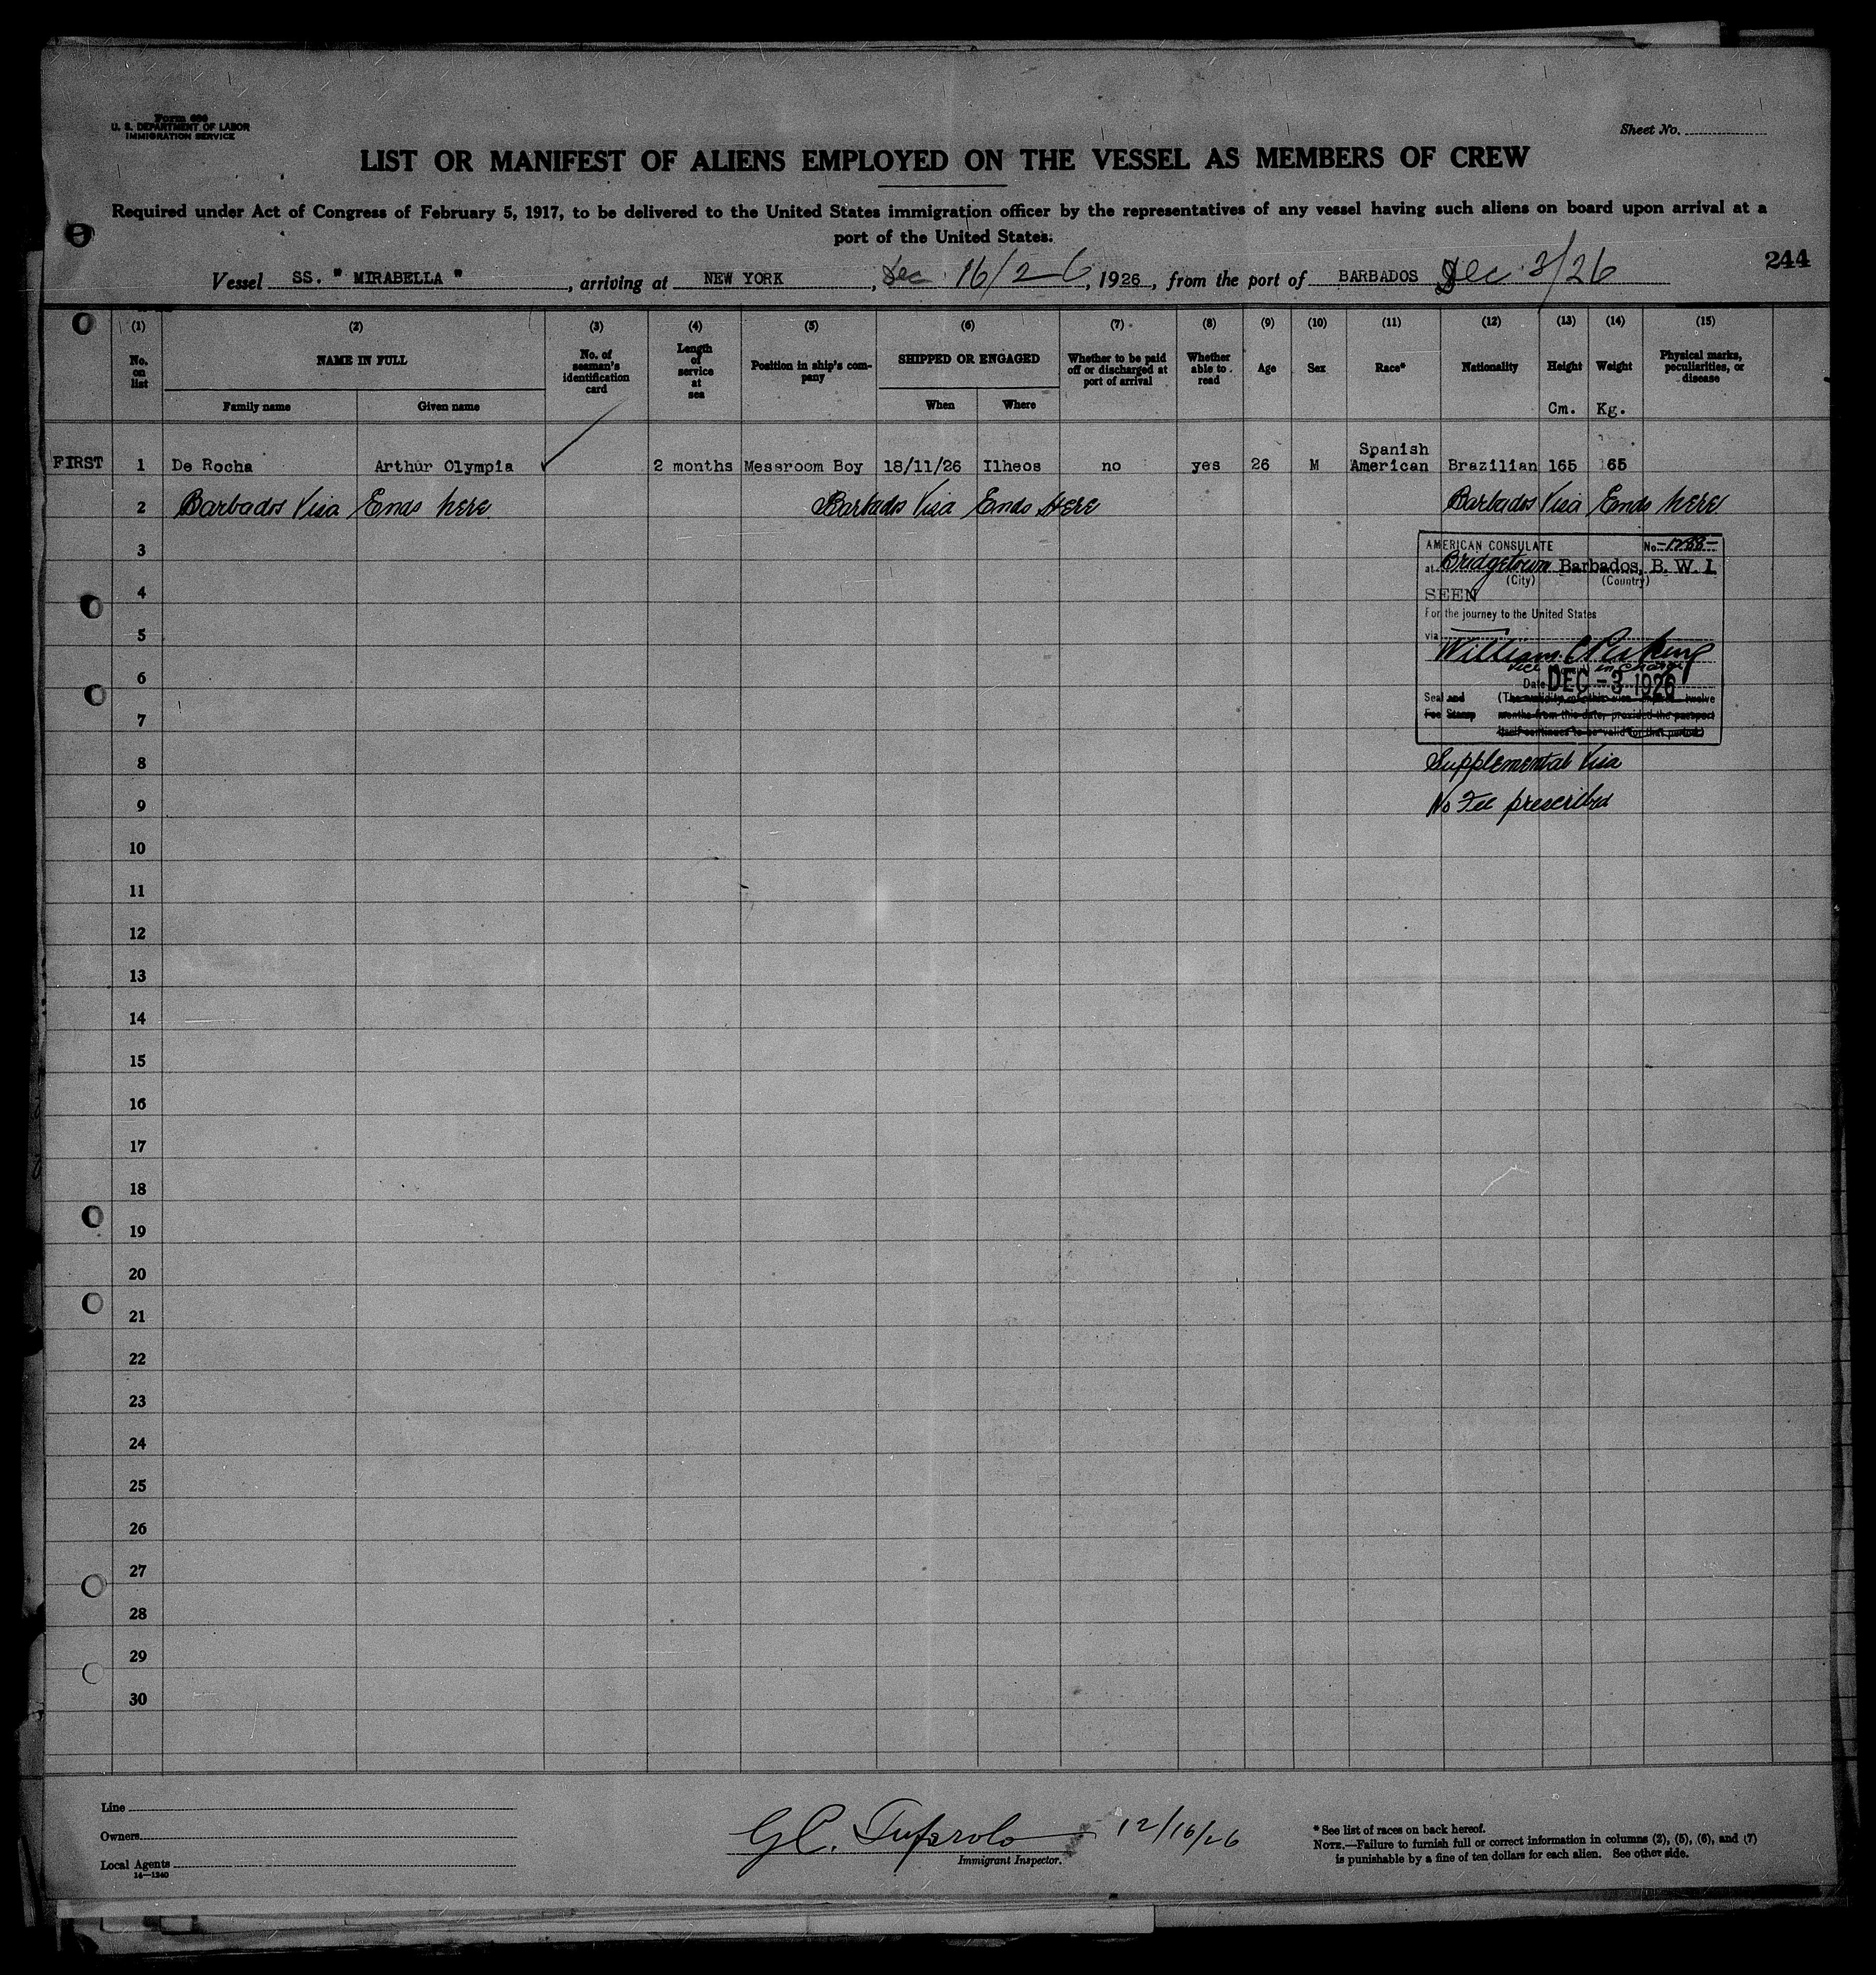 Form 680
U. S. DEPARTMENT OF LABOR
IMMIGRATION SERVICE
Sheet No.
LIST OR MANIFEST OF ALIENS EMPLOYED ON THE VESSEL AS MEMBERS OF CREW
Required under Act of Congress of February 5, 1917, to be delivered to the United States immigration officer by the representatives of any vessel having such aliens on board upon arrival at a
port of the United States.
244
Vessel SS. " MIRABELLA ", arriving at NEW YORK, Dec 16/26, 1926, from the port of BARBADOS Dec 3/26
(1) (2) (3) (4) (5) (6) (7) (8) (9) (10) (11) (12) (13) (14) (15)
No. on list NAME IN FULL No. of seaman's identification card Length of service at sea Position in ship's company SHIPPED OR ENGAGED Whether to be paid off or discharged at port of arrival Whether able to read Age Sex Race* Nationality Height Weight Physical marks, peculiarities, or disease
Family name Given name When Where Cm. Kg.
FIRST 1 De Rocha Arthur Olympia 2 months Messroom Boy 18/11/26 Ilheos no yes 26 M Spanish American Brazilian 165 65
2 Barbados Visa Ends here Barbados Visa Ends Here Barbados Visa Ends here
3
4
5
6
7
8
9
10
11
12
13
14
15
16
17
18
19
20
21
22
23
24
25
26
27
28
29
30
AMERICAN CONSULATE No. -1288-
at Bridgetown Barbados, B. W. I.
(City) (Country)
SEEN
For the journey to the United States
via
William
Vice in charge
Date DEC -3 1926
Seal and (The validity of this visa expires twelve
Fee Stamp months from this date, provided the passport
itself continues to be valid for that period.)
Supplemental Visa
No Fee prescribed
Line
Owners
Local Agents
14—1240
G.C. 12/16/26
Immigrant Inspector.
* See list of races on back hereof.
NOTE.—Failure to furnish full or correct information in columns (2), (5), (6), and (7)
is punishable by a fine of ten dollars for each alien. See other side.